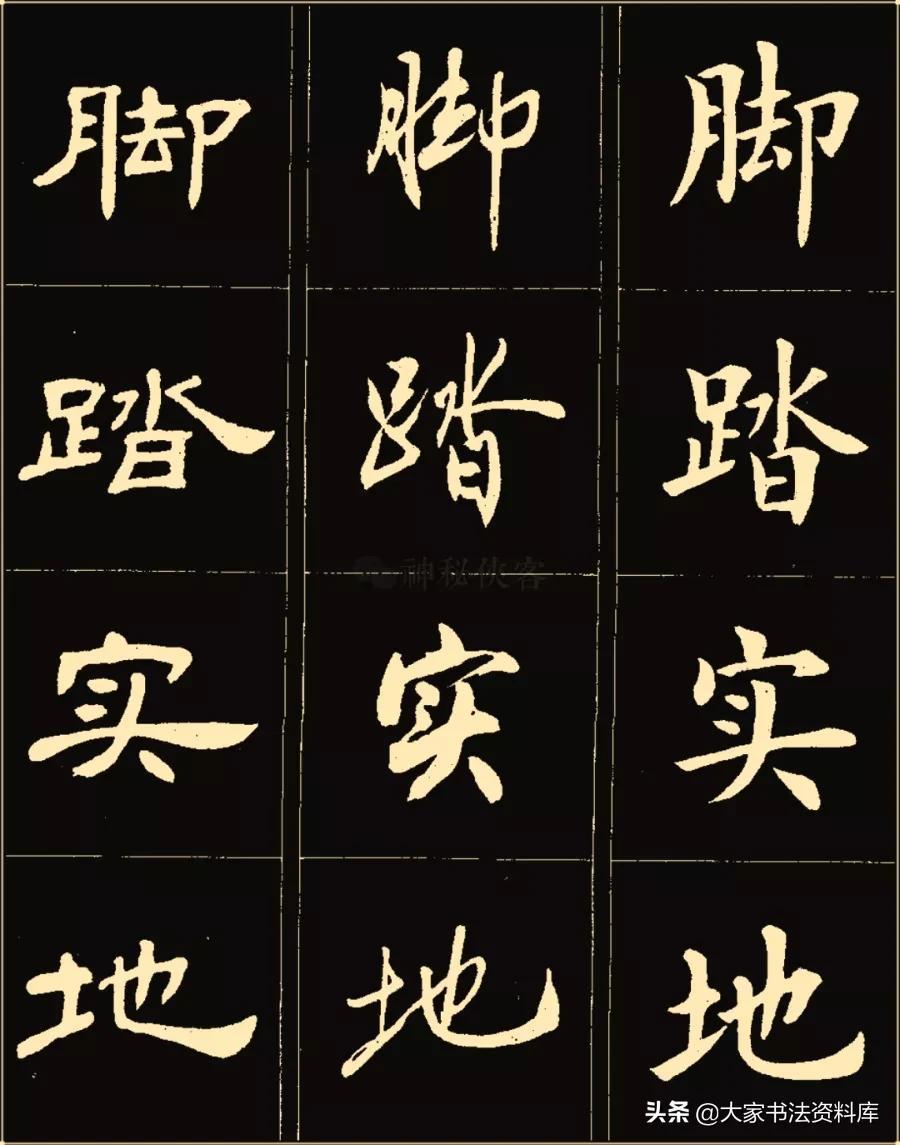 脚踏实地
脚踏实地
脚踏实地
神秘侠客
头条 @大家书法资料库